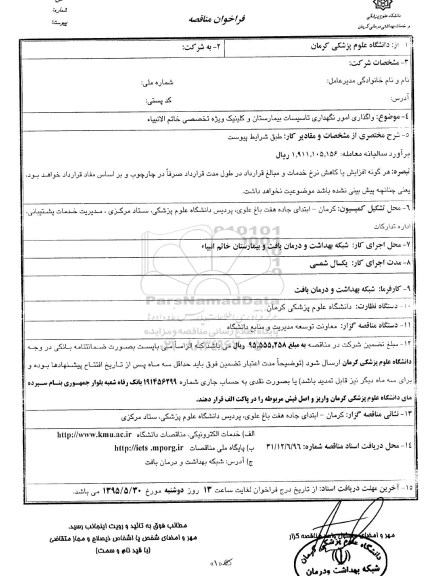 شماره:
پیوست:
فراخوان مناقصه
دانشگاه علوم پزشکی
و خدمات بهداشتی درمانی کرمان
۱- از: دانشگاه علوم پزشکی کرمان
۲- به شرکت:
۳- مشخصات شرکت:
نام و نام خانوادگی مدیرعامل:
شماره ملی:
آدرس:
کد پستی:
۴- موضوع: واگذاری امور نگهداری تاسیسات بیمارستان و کلینیک ویژه تخصصی خاتم الانبیاء
۵- شرح مختصری از مشخصات و مقادیر کار: طبق شرایط پیوست
برآورد سالیانه معامله: ۱,۹۱۱,۱۰۵,۱۵۶ ریال
تبصره: هر گونه افزایش یا کاهش نرخ خدمات و مبالغ قرارداد در طول مدت قرارداد صرفاً در چارچوب و بر اساس مفاد قرارداد خواهد بود.
یعنی چنانچه پیش بینی نشده باشد موضوعیت نخواهد داشت.
۶- محل تشکیل کمیسیون: کرمان - ابتدای جاده هفت باغ علوی، پردیس دانشگاه علوم پزشکی، ستاد مرکزی ، مدیریت خدمات پشتیبانی،
اداره تدارکات
۷- محل اجرای کار: شبکه بهداشت و درمان بافت و بیمارستان خاتم انبیاء
۸- مدت اجرای کار: یکسال شمسی
۹- کارفرما: شبکه بهداشت و درمان بافت
ParsNamadData
۱۰- دستگاه نظارت: دانشگاه علوم پزشکی کرمان
پایگاه اطلاع رسانی مناقصه ومزایده
۱۱- دستگاه مناقصه گزار: معاونت توسعه مدیریت و منابع دانشگاه
۱۲- مبلغ تضمین شرکت در مناقصه به مبلغ ۹۵,۵۵۵,۲۵۸ ریال می باشد که الزاماً می بایست بصورت ضمانتنامه بانکی در وجه
دانشگاه علوم پزشکی کرمان ارسال شود (توضیحاً مدت اعتبار تضمین فوق باید حداقل سه ماه پس از تاریخ افتتاح پیشنهادها بوده و
برای سه ماه دیگر نیز قابل تمدید باشد) یا بصورت نقدی به حساب جاری شماره ۱۹۱۴۵۶۲۹۹ بانک رفاه شعبه بلوار جمهوری بنام سپرده
های دانشگاه علوم پزشکی کرمان واریز و اصل فیش مربوطه را در پاکت الف قرار دهند.
۱۳- نشانی مناقصه گزار: کرمان - ابتدای جاده هفت باغ علوی، پردیس دانشگاه علوم پزشکی، ستاد مرکزی
۱۴- محل دریافت اسناد مناقصه شماره: ۳۱/۱۲/۶/۹۶
الف) خدمات الکترونیکی، مناقصات دانشگاه http://www.kmu.ac.ir
ب) پایگاه ملی مناقصات http://iets.mporg.ir
ج) آدرس: شبکه بهداشت و درمان بافت
۱۵- آخرین مهلت دریافت اسناد: از تاریخ درج فراخوان لغایت ساعت ۱۳ روز دوشنبه مورخ ۱۳۹۵/۵/۳۰ می باشد.
مطالب فوق به تائید و رویت اینجانب رسید.
مهر و امضای شخص یا اشخاص ذیصلاح و مجاز متقاضی
(با قید نام و سمت)
مهر و امضای مناقصه گزار
دانشگاه علوم پزشکی کرمان
شبکه بهداشت ودرمان